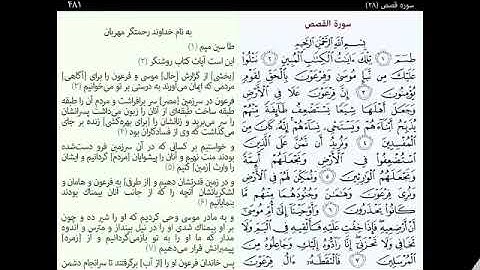 سوره قصص (۲۸)
۴۸۱
سورة القصص
بِسْمِ اللَّهِ الرَّحْمَٰنِ الرَّحِيمِ
طسٓمٓ ۝١ تِلْكَ ءَايَٰتُ ٱلْكِتَٰبِ ٱلْمُبِينِ ۝٢ نَتْلُوا۟
عَلَيْكَ مِن نَّبَإِ مُوسَىٰ وَفِرْعَوْنَ بِٱلْحَقِّ لِقَوْمٍ
يُؤْمِنُونَ ۝٣ إِنَّ فِرْعَوْنَ عَلَا فِى ٱلْأَرْضِ
وَجَعَلَ أَهْلَهَا شِيَعًا يَسْتَضْعِفُ طَآئِفَةً مِّنْهُمْ
يُذَبِّحُ أَبْنَآءَهُمْ وَيَسْتَحْىِۦ نِسَآءَهُمْ إِنَّهُۥ كَانَ مِنَ
ٱلْمُفْسِدِينَ ۝٤ وَنُرِيدُ أَن نَّمُنَّ عَلَى ٱلَّذِينَ
ٱسْتُضْعِفُوا۟ فِى ٱلْأَرْضِ وَنَجْعَلَهُمْ أَئِمَّةً
وَنَجْعَلَهُمُ ٱلْوَٰرِثِينَ ۝٥ وَنُمَكِّنَ لَهُمْ فِى ٱلْأَرْضِ
وَنُرِىَ فِرْعَوْنَ وَهَٰمَٰنَ وَجُنُودَهُمَا مِنْهُم مَّا
كَانُوا۟ يَحْذَرُونَ ۝٦ وَأَوْحَيْنَآ إِلَىٰٓ أُمِّ مُوسَىٰٓ
أَنْ أَرْضِعِيهِ فَإِذَا خِفْتِ عَلَيْهِ فَأَلْقِيهِ فِى ٱلْيَمِّ وَلَا
تَخَافِى وَلَا تَحْزَنِىٓ إِنَّا رَآدُّوهُ إِلَيْكِ وَجَاعِلُوهُ مِنَ
ٱلْمُرْسَلِينَ ۝٧ فَٱلْتَقَطَهُۥٓ ءَالُ فِرْعَوْنَ
به نام خداوند رحمتگر مهربان
طا سین میم (۱)
این است آیات کتاب روشنگر (۲)
[بخشی] از گزارش [حال] موسی و فرعون را برای [آگاهی]
مردمی که ایمان می‌آورند به درستی بر تو می‌خوانیم (۳)
فرعون در سرزمین [مصر] سر برافراشت و مردم آن را طبقه
طبقه ساخت طبقه‌ای از آنان را زبون می‌داشت پسرانشان
را سر می‌برید و زنانشان را [برای بهره‌کشی] زنده بر جای
می‌گذاشت که وی از فسادکاران بود (۴)
و خواستیم بر کسانی که در آن سرزمین فرو دست‌شده
بودند منت نهیم و آنان را پیشوایان [مردم] گردانیم و ایشان
را وارث [زمین] کنیم (۵)
و در زمین قدرتشان دهیم و [از طرفی] به فرعون و هامان و
لشکریانشان آنچه را که از جانب آنان بیمناک بودند
بنمایانیم (۶)
و به مادر موسی وحی کردیم که او را شیر ده و چون
بر او بیمناک شدی او را در نیل بینداز و مترس و اندوه
مدار که ما او را به تو بازمی‌گردانیم و از [زمره]
پیمبرانش قرار می‌دهیم (۷)
پس خاندان فرعون او را [از آب] برگرفتند تا سرانجام دشمن